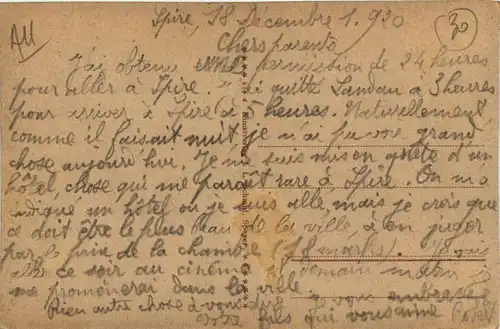 All
Spire, 18 Décembre 1.920
30
Chers parents
J'ai obtenu une permission de 24 heures
pour aller à Spire. J'ai quitté Landau à 3 heures
pour arriver à Spire à 5 heures. Naturellement
comme il faisait nuit je n'ai pu voir grand
chose aujourd'hui. Je me suis mis en quête d'un
hôtel, chose qui me paraît rare à Spire. On m'a
indiqué un hôtel ou je suis allé mais je crois que
ce doit être le plus beau de la ville, à en juger
par le prix de la chambre (18 marks). Je vais
aller ce soir au cinéma et demain matin
me promènerai dans la ville
Rien autre chose à vous dire je vous embrasse
votre fils qui vous aime